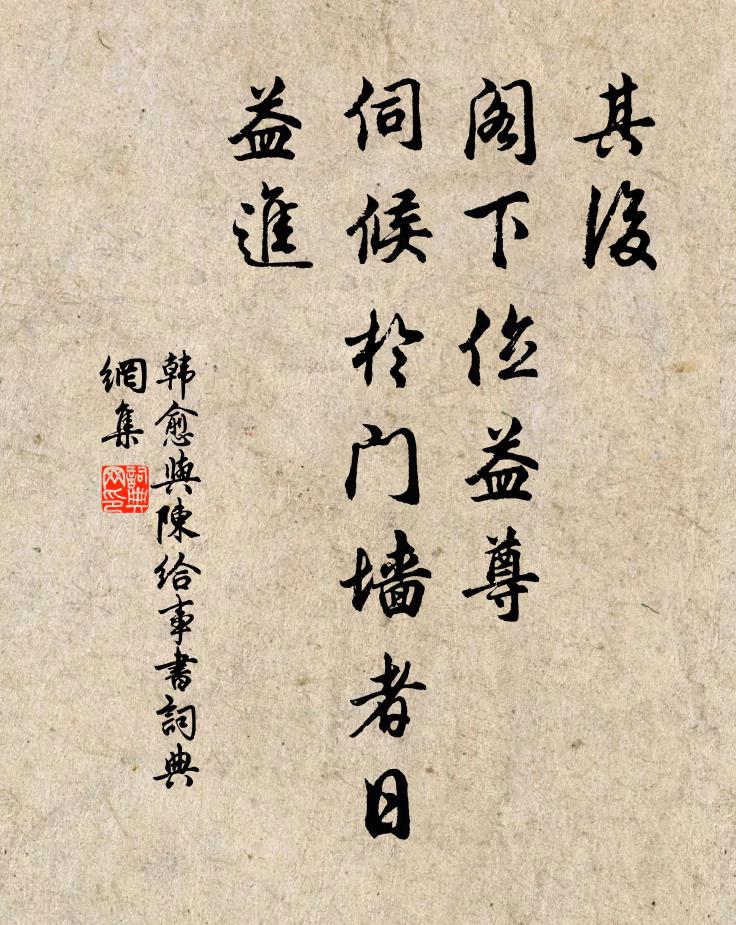 其後
閣下位益尊
伺候於門墻者日
益進
韩愈與陳给事書詞典
網集
詞典
网印